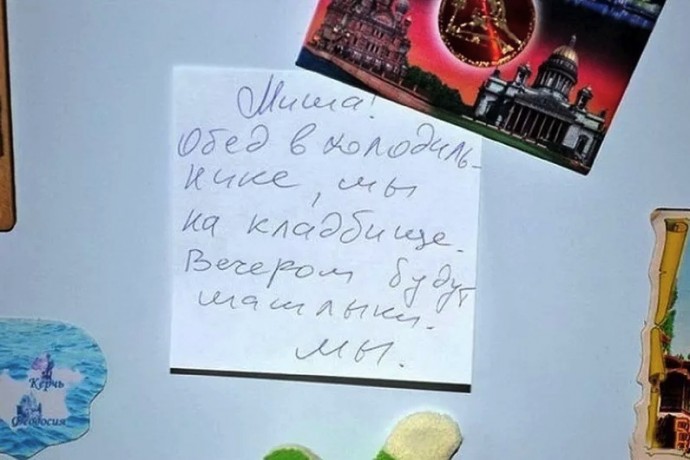 Миша!
Обед в холодиль-
нике, мы
на кладбище.
Вечером будут
шашлыки.
Мы.
Керчь
Феодосия